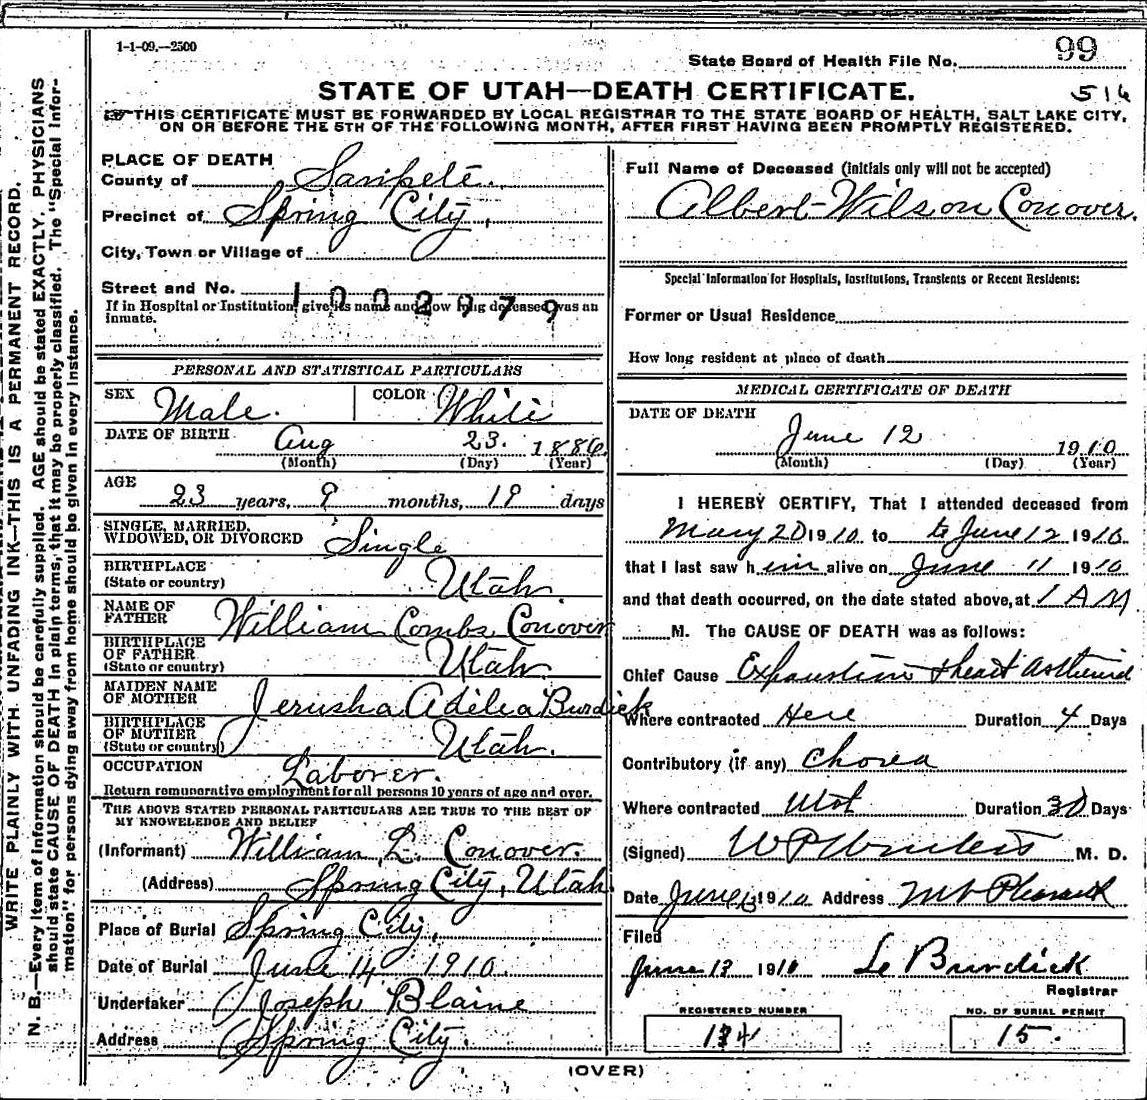 1-1-09.—2500
State Board of Health File No. 99
STATE OF UTAH—DEATH CERTIFICATE.
516
THIS CERTIFICATE MUST BE FORWARDED BY LOCAL REGISTRAR TO THE STATE BOARD OF HEALTH, SALT LAKE CITY,
ON OR BEFORE THE 5TH OF THE FOLLOWING MONTH, AFTER FIRST HAVING BEEN PROMPTLY REGISTERED.
WRITE PLAINLY WITH UNFADING INK—THIS IS A PERMANENT RECORD.
N. B.—Every item of information should be carefully supplied. AGE should be stated EXACTLY. PHYSICIANS
should state CAUSE OF DEATH in plain terms, that it may be properly classified. The "Special Infor-
mation" for persons dying away from home should be given in every instance.
PLACE OF DEATH
County of Sanpete.
Precinct of Spring City,
City, Town or Village of
Street and No.
1002979
If in Hospital or Institution give its name and how long deceased was an
inmate.
PERSONAL AND STATISTICAL PARTICULARS
SEX Male. COLOR White
DATE OF BIRTH Aug 23. 1886.
(Month) (Day) (Year)
AGE
23 years, 9 months, 19 days
SINGLE, MARRIED,
WIDOWED, OR DIVORCED Single
BIRTHPLACE
(State or country) Utah.
NAME OF
FATHER William Combs Conover
BIRTHPLACE
OF FATHER
(State or country) Utah.
MAIDEN NAME
OF MOTHER Jerusha Adelia Burdick
BIRTHPLACE
OF MOTHER
(State or country) Utah.
OCCUPATION Laborer.
Return remunerative employment for all persons 10 years of age and over.
THE ABOVE STATED PERSONAL PARTICULARS ARE TRUE TO THE BEST OF
MY KNOWLEDGE AND BELIEF
(Informant) William L. Conover.
(Address) Spring City, Utah.
Place of Burial Spring City,
Date of Burial June 14 1910.
Undertaker Joseph Blaine
Address Spring City.
Full Name of Deceased (initials only will not be accepted)
Albert Wilson Conover,
Special Information for Hospitals, Institutions, Transients or Recent Residents:
Former or Usual Residence
How long resident at place of death
MEDICAL CERTIFICATE OF DEATH
DATE OF DEATH
June 12 1910
(Month) (Day) (Year)
I HEREBY CERTIFY, That I attended deceased from
May 20 1910 to to June 12 1910
that I last saw him alive on June 11 1910
and that death occurred, on the date stated above, at 1 AM
M. The CAUSE OF DEATH was as follows:
Chief Cause Exhaustion & heart
Where contracted Here Duration 4 Days
Contributory (if any) Chorea
Where contracted Utah Duration 30 Days
(Signed) M. D.
Date June 1910 Address Mt Pleasant
Filed
June 13 1910 Burdick
Registrar
REGISTERED NUMBER
134
NO. OF BURIAL PERMIT
15.
(OVER)